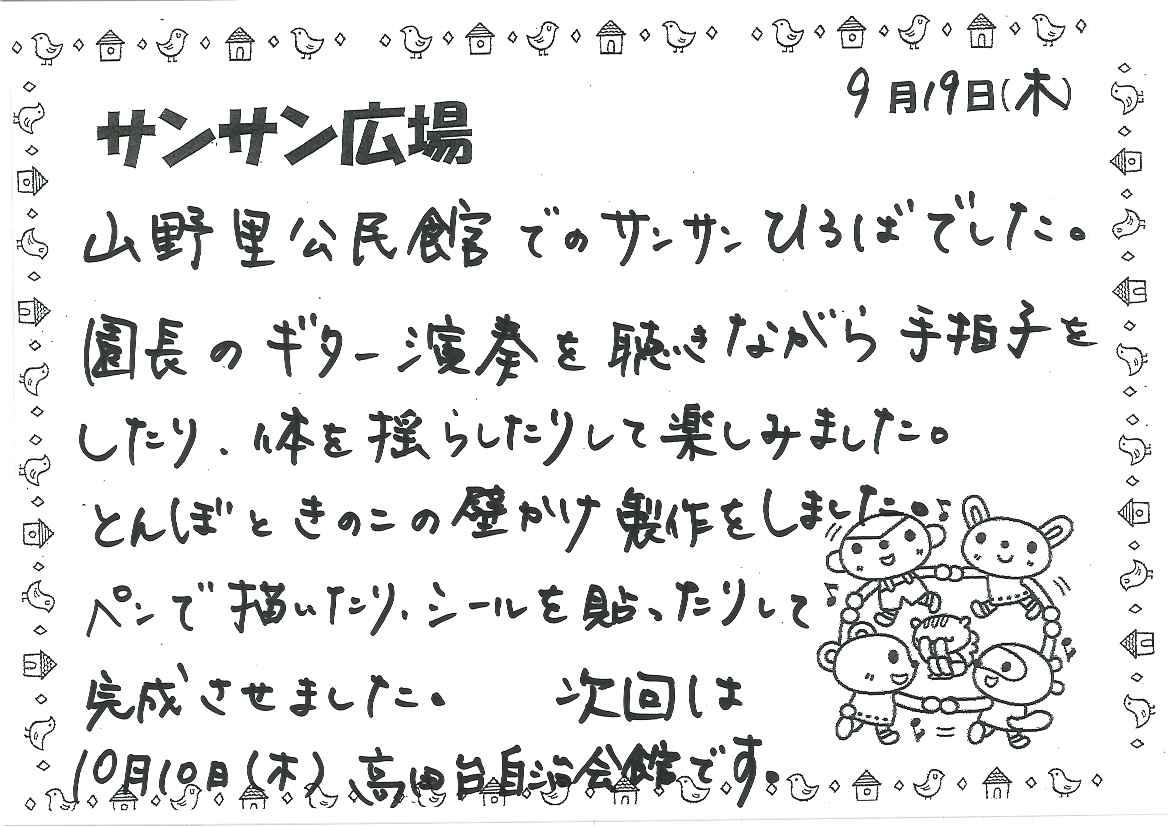 9月19日(木)
サンサン広場
山野里公民館でのサンサンひろばでした。
園長のギター演奏を聴きながら手拍子を
したり、体を揺らしたりして楽しみました。
とんぼときのこの壁かけ製作をしました。
ペンで描いたり、シールを貼ったりして
完成させました。 次回は
10月10日(木)高田台自治会館です。